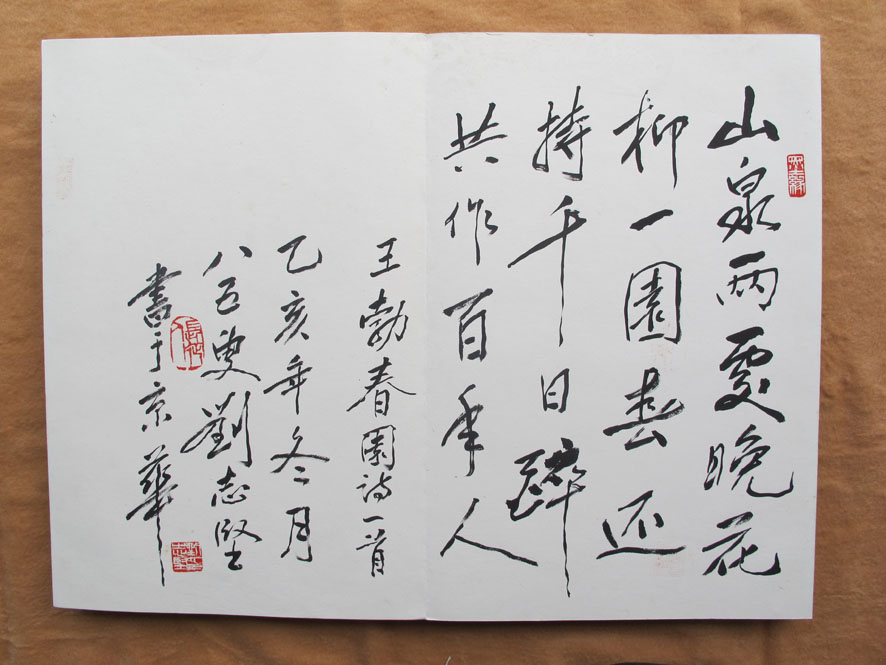 山泉两處晚花
柳一園春还
持千日醉
共作百年人
王勃春園诗一首
乙亥年冬月
八五叟劉志坚
書于京華